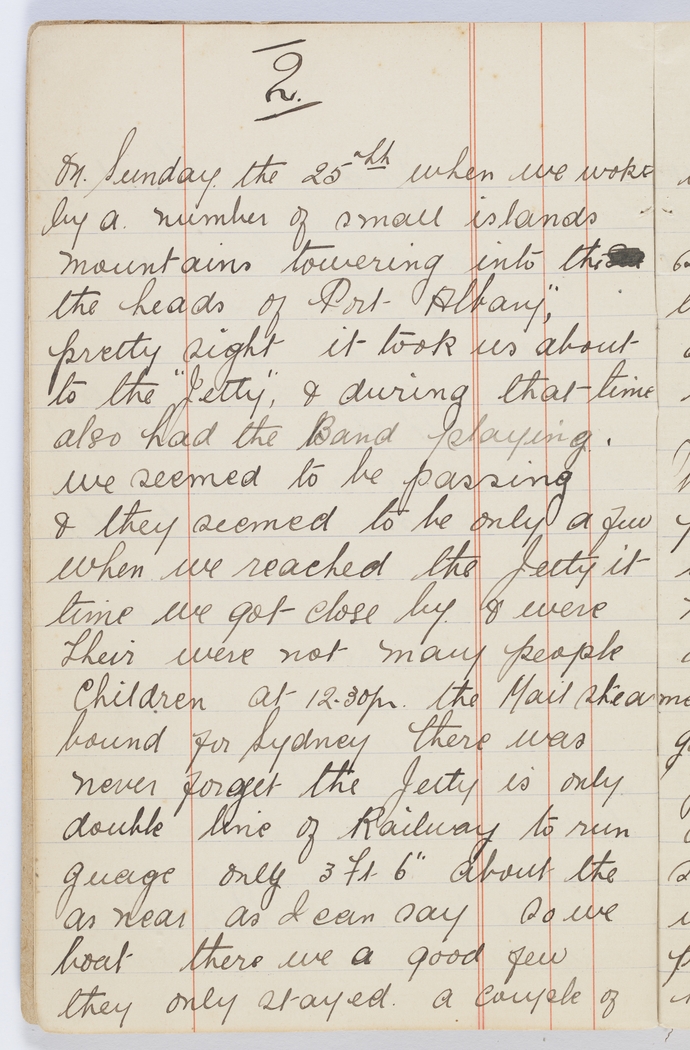 2.
On Sunday the 25th when we woke
by a number of small islands
mountains towering into the
the heads of Port Albany",
pretty sight it took us about
to the "Jetty", & during that time
also had the Band playing.
we seemed to be passing
& they seemed to be only a few
when we reached the Jetty it
time we got close by & were
Their were not many people
Children at 12.30pm. the Mail steame
bound for Sydney there was
never forget the Jetty is only
double line of Railway to run
guage only 3 Ft 6" about the
as near as I can say so we
boat there we a good few
they only stayed. a couple of